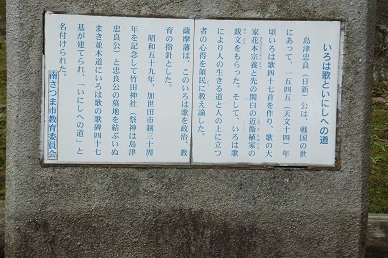 いろは歌といにしへの道
島津忠良(日新)公は、戦国の世
にあって、一五四五(天文十四)年
頃いろは歌四十七首を作り、歌の大
家花本宗養と先の関白の近衛稙家の
跋文をもらった。そして、いろは歌
により人の生きる道と人の上に立つ
者の心得を領民に教え諭した。
薩摩藩は、このいろは歌を政治、教
育の指針とした。
昭和五十九年、加世田市制三十周
年を記念して竹田神社(祭神は島津
忠良公)と忠良公の墓地を結ぶいぬ
まき並木道にいろは歌の歌碑四十七
基が建てられ、「いにしへの道」と
名付けられた。
南さつま市教育委員会